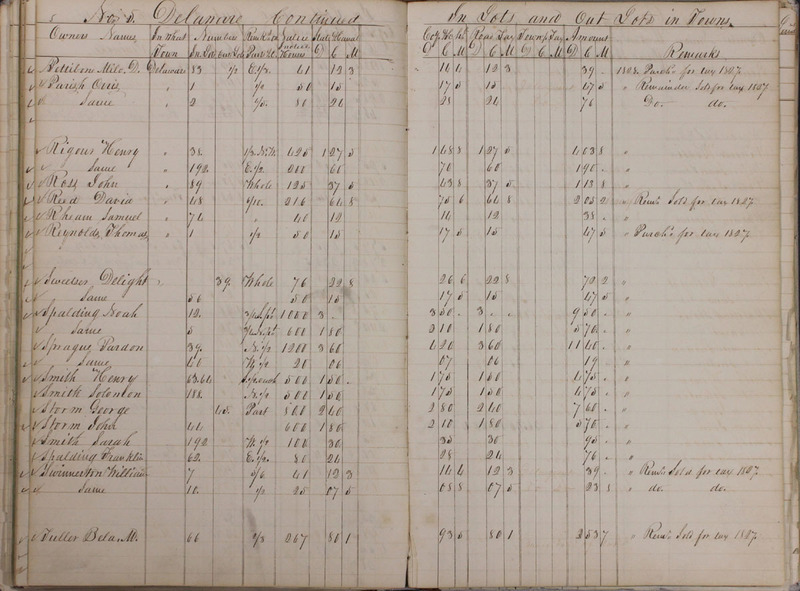 No. 5. Delaware Continued In Lots and Out Lots in Towns.
Owners Names In What Town Number In Lot Out Lot Part &c. Value State & Canal D C M Coy & School D C M Road Tax D C M Township Tax D C M Amount D C M Remarks
Pettibone Milo. D. Delaware 83 1/2 E. 1/2 41 12 3 14 4 12 3 39 - 1828. Purch'd for tax 1827
Parish Orris " 1 1/2 50 15 17 5 15 47 5 " Remainder Sold for tax 1827
Same " 2 80 24 28 24 76 Do. do.
Rigour Henry " 38. 425 1 27 5 1 48 8 1 27 5 4 03 8 "
Same " 192. E. 1/2 200 60 70 60 1 90 - "
Ross John " 89 Whole 125 37 5 43 8 37 5 1 18 8 "
Reed David " 48 216 64 8 75 6 64 8 2 05 2 " Rem'r Sold for tax 1827
Rheam Samuel " 74 " 40 12 14 12 38 - "
Reynolds Thomas " 1 1/2 50 15 17 5 15 47 5 " Purch'd for tax 1827
Sweetser Delight " 39. Whole 76 22 8 26 6 22 8 72 2 "
Same 36 50 15 17 5 15 47 5 "
Spalding Noah 12. 1000 3 - 3 50 - 3 - - 9 50 - "
Same 5 600 1 80 2 10 1 80 5 70 - "
Sprague Pardon 39. N. 1/2 1200 3 60 4 20 3 60 11 40 - "
Same 40 W. 1/2 20 06 07 06 19 "
Smith Henry 63.64 500 1 50 - 1 75 1 50 4 75 - "
Smith Solomon 188. 500 1 50 1 75 1 50 4 75 - "
Storm George 45. Part 800 2 40 2 80 2 40 7 60 - "
Storm John 44 600 1 80 2 10 1 80 5 70 - "
Smith Sarah 192 W. 1/2 100 30 35 30 95 - "
Spalding Franklin 62. E. 1/2 80 24 28 24 76 - "
Swinnerton William 7 41 12 3 14 4 12 3 39 - " Rem'r Sold for tax 1827
Same 10. 1/2 25 07 5 08 8 07 5 23 8 " do. do.
Fuller Bela M. 66 2/3 267 80 1 93 5 80 1 2 53 7 " Rem'r Sold for tax 1827